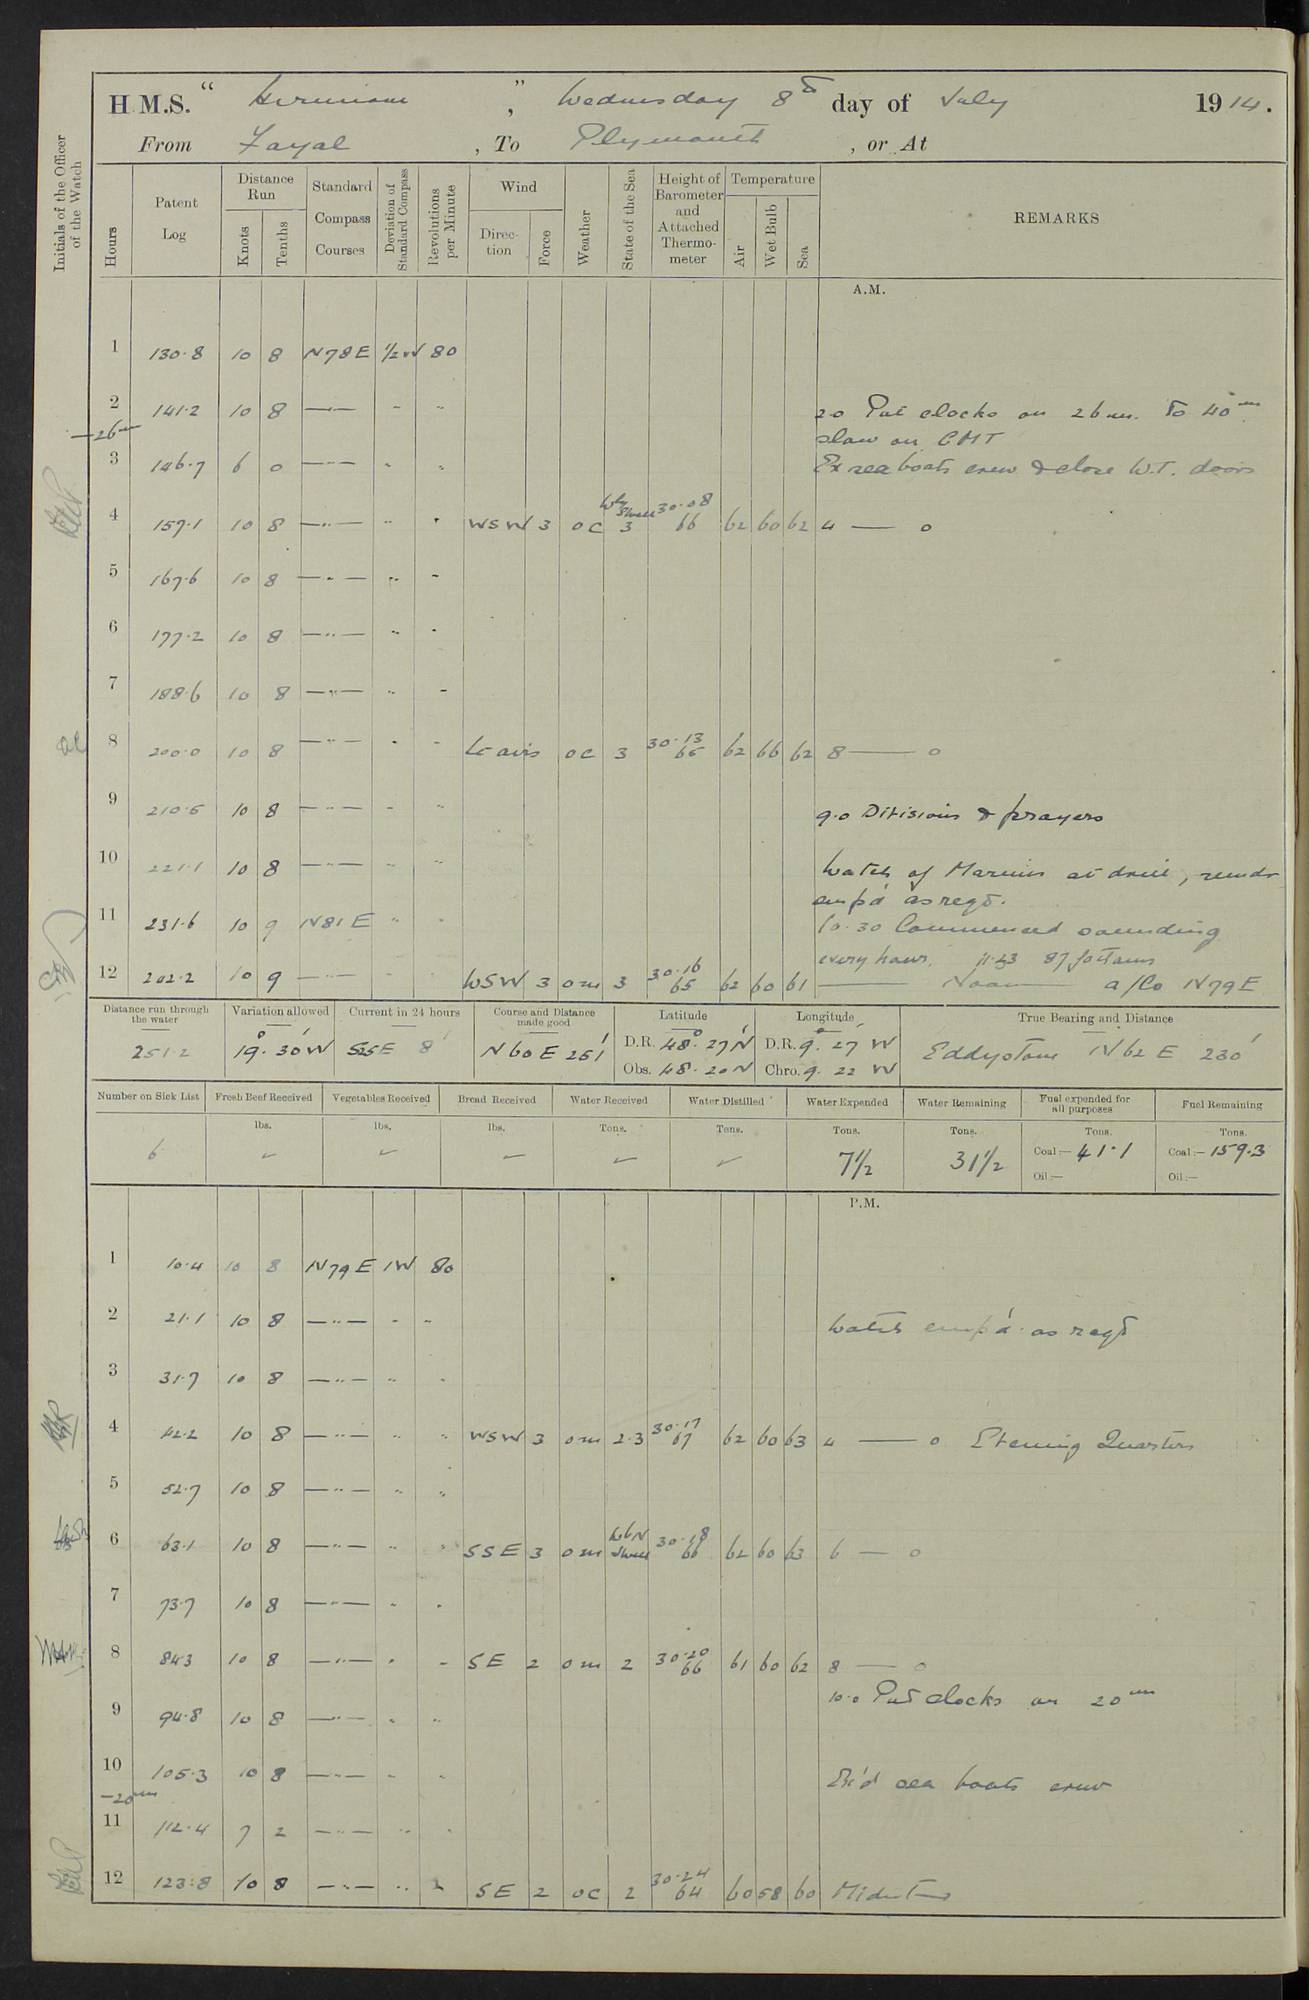 H.M.S. "Hermione", Wednesday 8th day of July 1914.
From Fayal, To Plymouth, or At
Initials of the Officer of the Watch
Hours
Patent Log
Distance Run
Knots
Tenths
Standard Compass Courses
Deviation of Standard Compass
Revolutions per Minute
Wind
Direction
Force
Weather
State of the Sea
Height of Barometer and Attached Thermometer
Temperature
Air
Wet Bulb
Sea
REMARKS
A.M.
1 130.8 10 8 N78E 1/2W 80
2 141.2 10 8 —"— " " 2.0 Put clocks on 26 m. To 40 m
—26m slow on GMT
3 146.7 6 0 —"— " " Ex sea boats crew & close W.T. doors
4 157.1 10 8 —"— " " WSW 3 oc Wly Swell 3 30.08 66 62 60 62 4 — 0
5 167.6 10 8 —"— " "
6 177.2 10 8 —"— " "
7 188.6 10 8 —"— " "
8 200.0 10 8 —"— " " Lt airs oc 3 30.13 65 62 66 62 8 — 0
9 210.5 10 8 —"— " " 9.0 Divisions & prayers
10 221.1 10 8 —"— " " Watch of Marines at drill, remdr
emp'd as reqd.
11 231.6 10 9 N81E " " 10.30 Commenced sounding
every hour. 11.43 87 fathoms
12 242.2 10 9 —"— " " WSW 3 om 3 30.16 65 62 60 61 — Noon — a/Co N79E
Distance run through the water
Variation allowed
Current in 24 hours
Course and Distance made good
Latitude
Longitude
True Bearing and Distance
251.2 19° 30' W SSE 8' N60E 251' D.R. 48° 27' N D.R. 9° 27' W Eddystone N62E 230'
Obs. 48. 20 N Chro. 9. 22 W
Number on Sick List
Fresh Beef Received
Vegetables Received
Bread Received
Water Received
Water Distilled
Water Expended
Water Remaining
Fuel expended for all purposes
Fuel Remaining
lbs. lbs. lbs. Tons. Tons. Tons. Tons. Tons. Tons.
6 ✓ ✓ ✓ ✓ ✓ 7½ 31½ Coal:— 41.1 Coal:— 159.3
Oil:— Oil:—
P.M.
1 10.4 10 8 N79E 1W 80
2 21.1 10 8 —"— " " Watch emp'd as reqd
3 31.7 10 8 —"— " "
4 42.2 10 8 —"— " " WSW 3 om 2.3 30.17 67 62 60 63 4 — 0 Evening Quarters
5 52.7 10 8 —"— " "
6 63.1 10 8 —"— " " SSE 3 om WbN Swell 30.18 66 62 60 63 6 — 0
7 73.7 10 8 —"— " "
8 84.3 10 8 —"— " " SE 2 om 2 30.20 66 61 60 62 8 — 0
10.0 Put clocks on 20 m
9 94.8 10 8 —"— " "
10 105.3 10 8 —"— " " Ex'd sea boats crew
—20m
11 112.4 7 2 —"— " "
12 123.8 10 8 —"— " " SE 2 oc 2 30.24 64 60 58 60 Midnt